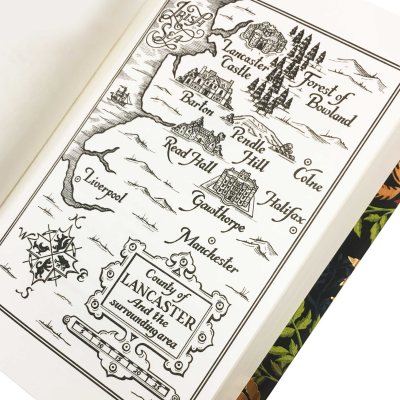 Irish
Sea
Lancaster
Castle
Forest of
Bowland
Barton
Pendle
Hill
Colne
Read Hall
Halifax
Gawthorpe
Liverpool
Manchester
N
W
E
S
County of
LANCASTER
And the
surrounding area